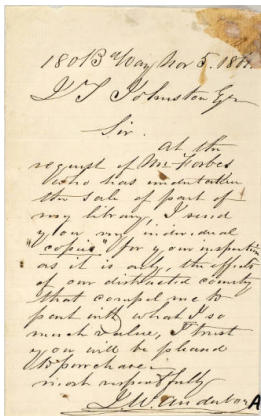 180 B'Way Nov 5. 186
J T Johnston Eqr
Sir.
At the
request of Mr Forbes
who has undertaken
the sale of part of
my library, I send
you my individual
"copies" for your inspection
as it is only, the effects
of our distracted country
that compel me to
part with what I so
much value, I trust
you will be pleased
to purchase.
most respectfully
J W
A